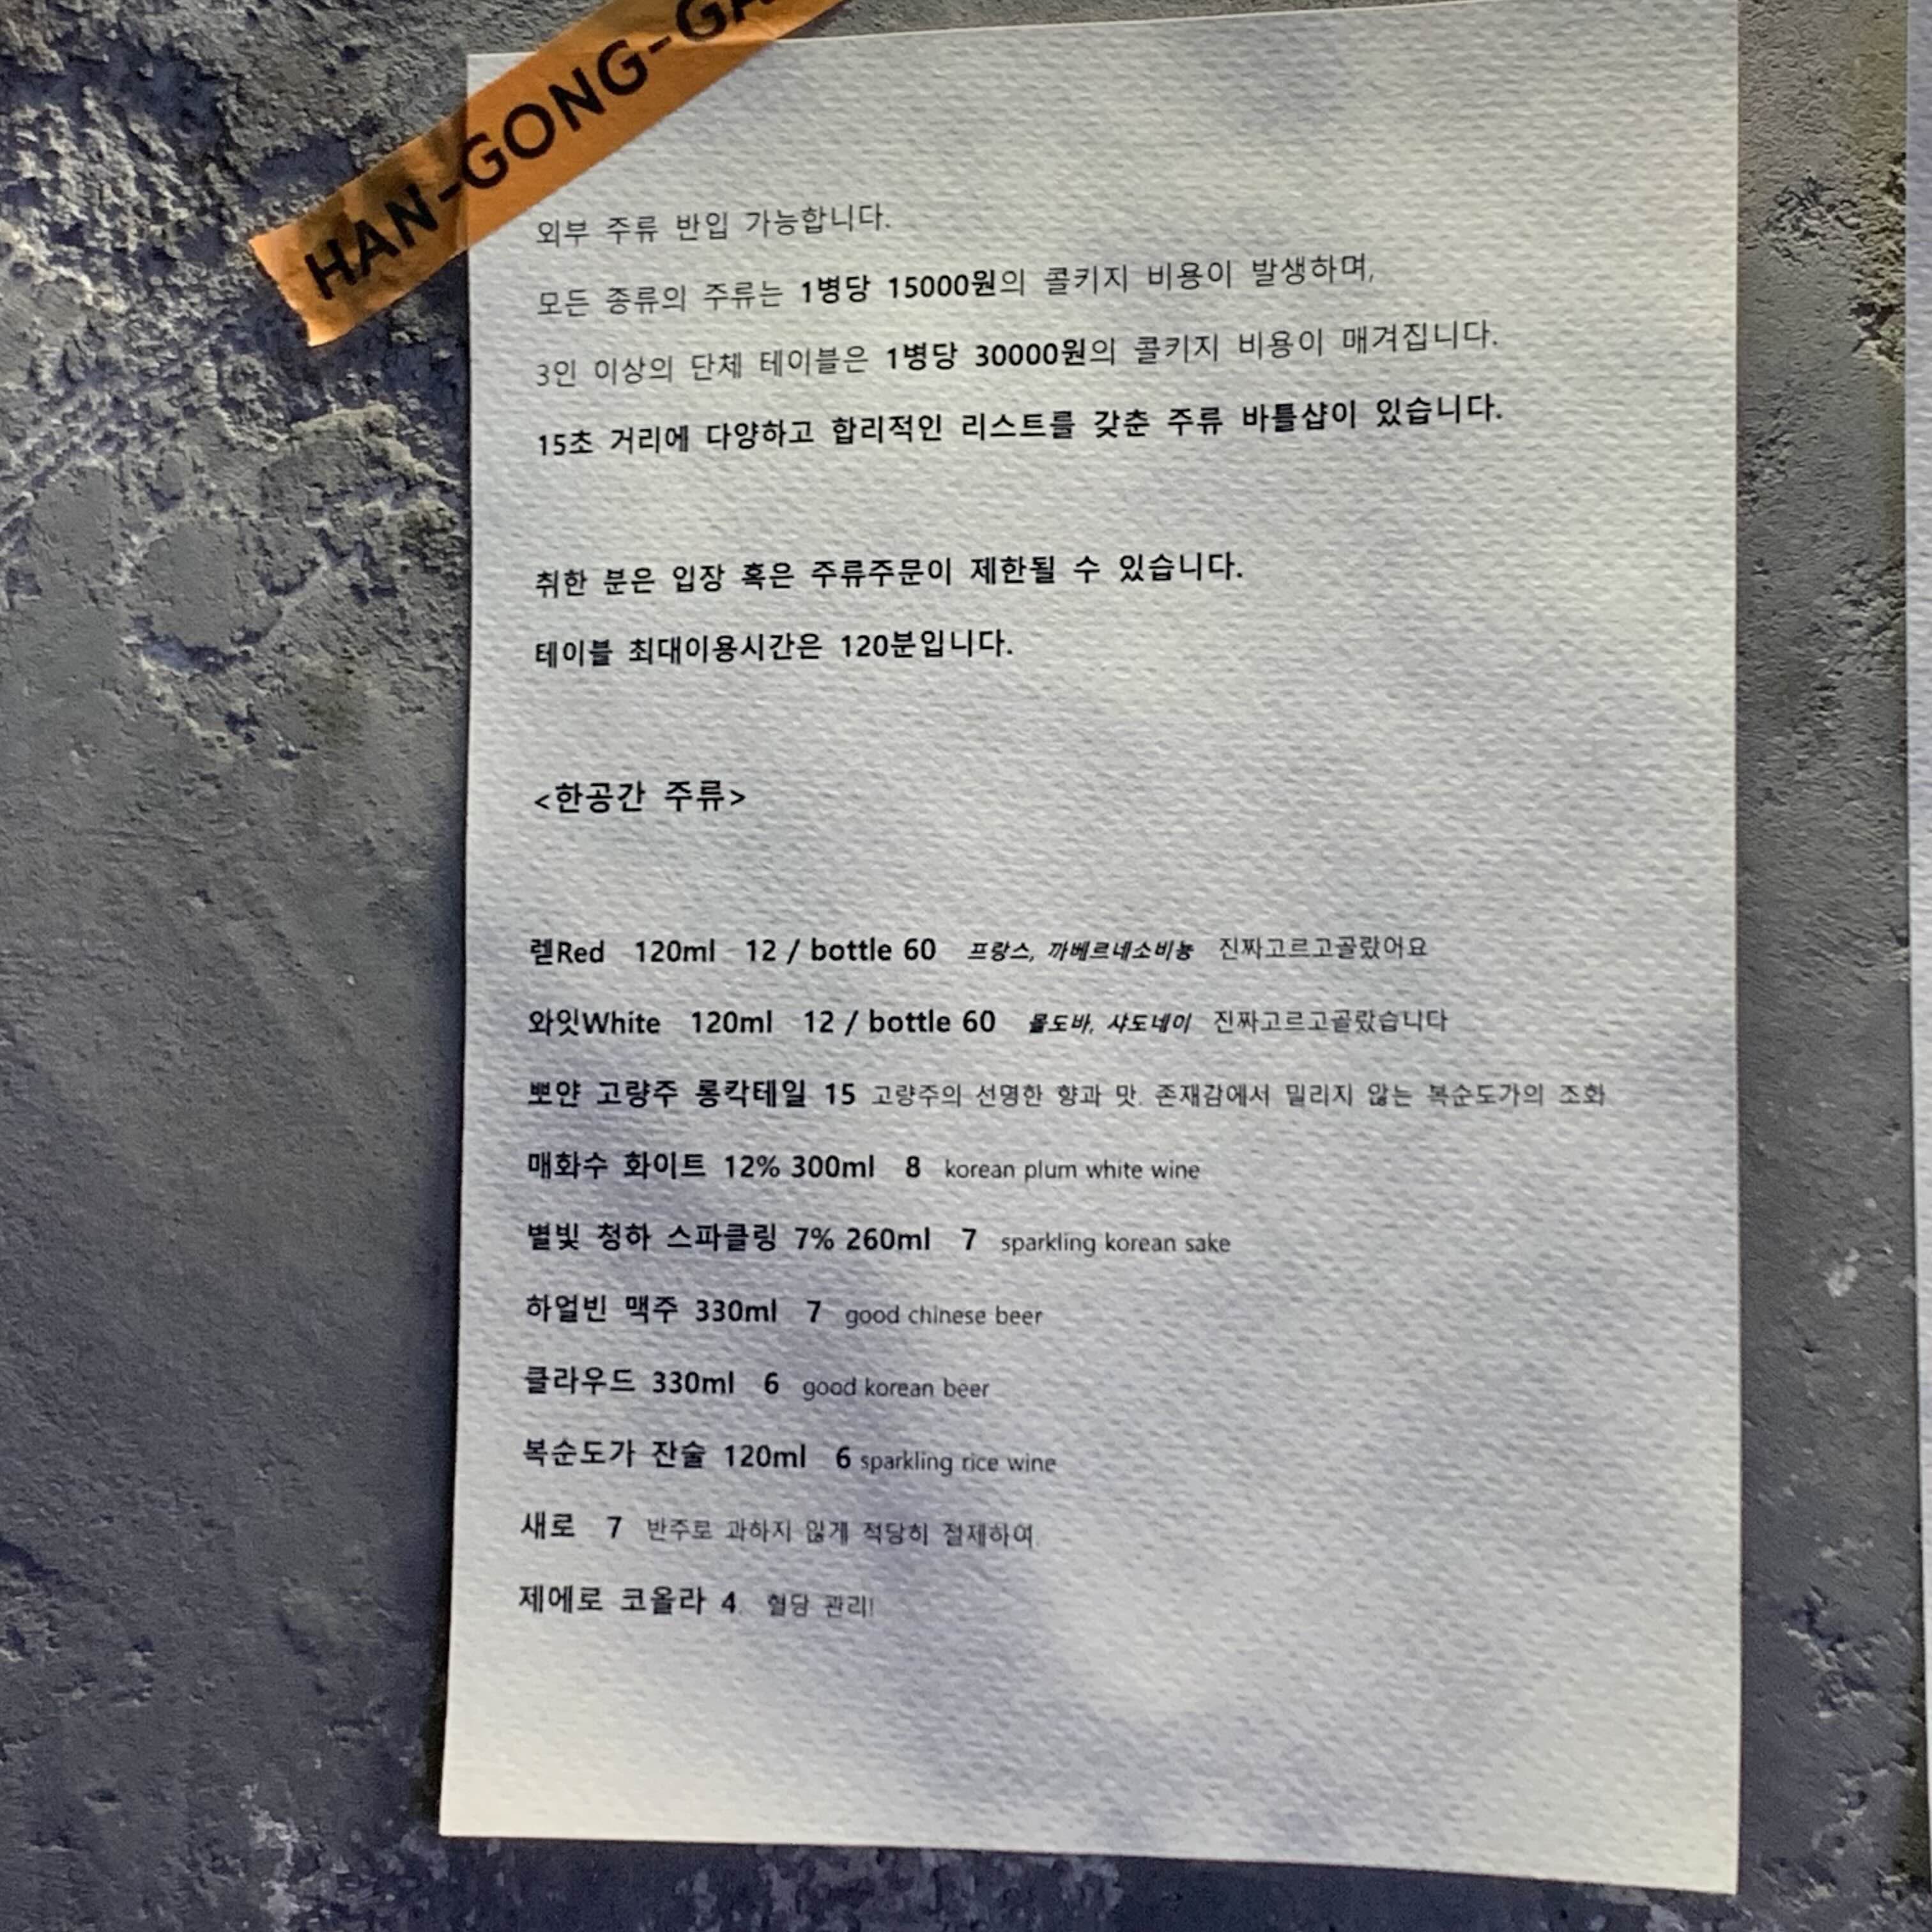 HAN-GONG-GA
외부 주류 반입 가능합니다.
모든 종류의 주류는 1병당 15000원의 콜키지 비용이 발생하며,
3인 이상의 단체 테이블은 1병당 30000원의 콜키지 비용이 매겨집니다.
15초 거리에 다양하고 합리적인 리스트를 갖춘 주류 바틀샵이 있습니다.
취한 분은 입장 혹은 주류주문이 제한될 수 있습니다.
테이블 최대이용시간은 120분입니다.
<한공간 주류>
렏Red 120ml 12 / bottle 60 프랑스, 까베르네소비뇽 진짜고르고골랐어요
와잇White 120ml 12 / bottle 60 몰도바, 샤도네이 진짜고르고골랐습니다
뽀얀 고량주 롱칵테일 15 고량주의 선명한 향과 맛. 존재감에서 밀리지 않는 복순도가의 조화
매화수 화이트 12% 300ml 8 korean plum white wine
별빛 청하 스파클링 7% 260ml 7 sparkling korean sake
하얼빈 맥주 330ml 7 good chinese beer
클라우드 330ml 6 good korean beer
복순도가 잔술 120ml 6 sparkling rice wine
새로 7 반주로 과하지 않게 적당히 절제하여
제에로 코올라 4. 혈당 관리!